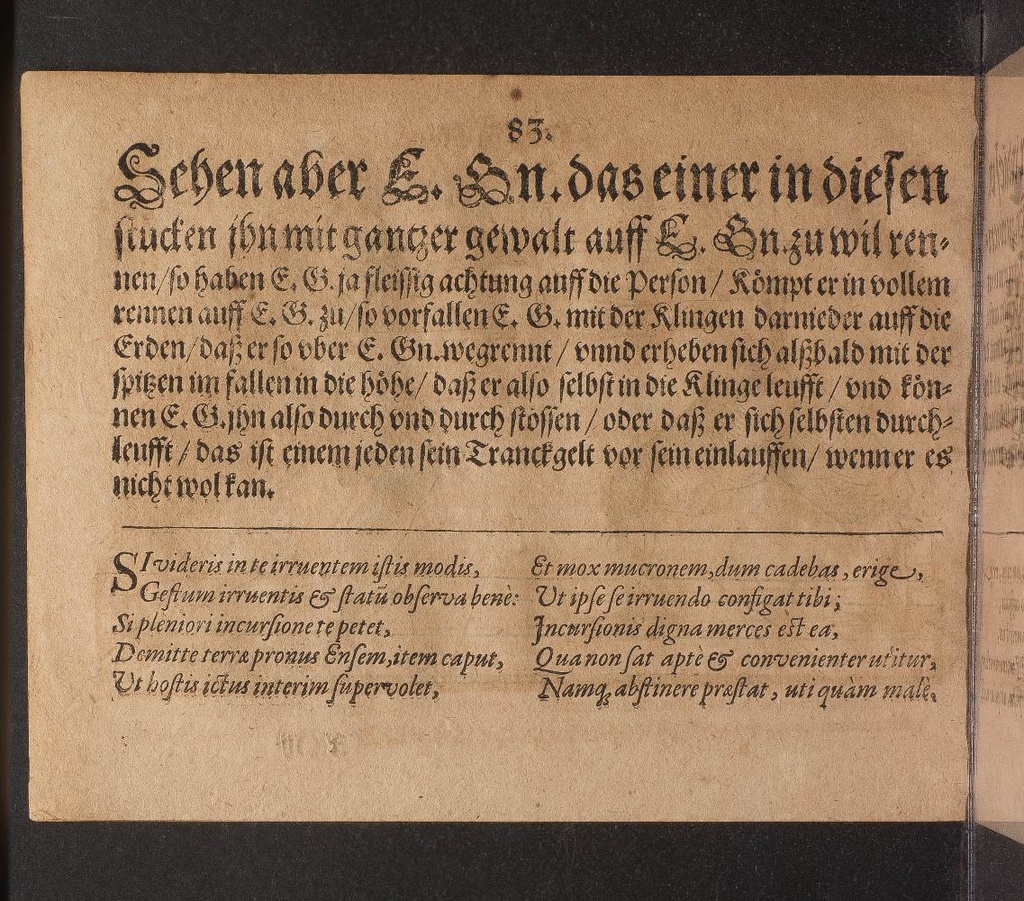 83.
Sehen aber E. Gn. das einer in diesen
stucken jhn mit gantzer gewalt auff E. Gn. zu wil ren-
nen/ so haben E. G. ja fleissig achtung auff die Person / Kömpt er in vollem
rennen auff E. G. zu/ so vorfallen E. G. mit der Klingen darnieder auff die
Erden/ daß er so vber E. Gn. wegrennt / vnnd erheben sich alßbald mit der
spitzen im fallen in die höhe/ daß er also selbst in die Klinge leufft / vnd kön-
nen E. G. jhn also durch vnd durch stössen / oder daß er sich selbsten durch-
leufft / das ist einem jeden sein Tranckgelt vor sein einlauffen/ wenn er es
nicht wol kan.
SI videris in te irruentem istis modis,
Gestum irruentis & statũ observa benè:
Si pleniori incursione te petet,
Demitte terræ pronus Ensem, item caput,
Ut hostis ictus interim supervolet,
Et mox mucronem, dum cadebas, erige,
Ut ipse se irruendo configat tibi;
Incursionis digna merces est ea,
Qua non sat aptè & convenienter utitur,
Namq; abstinere præstat, uti quàm malè.